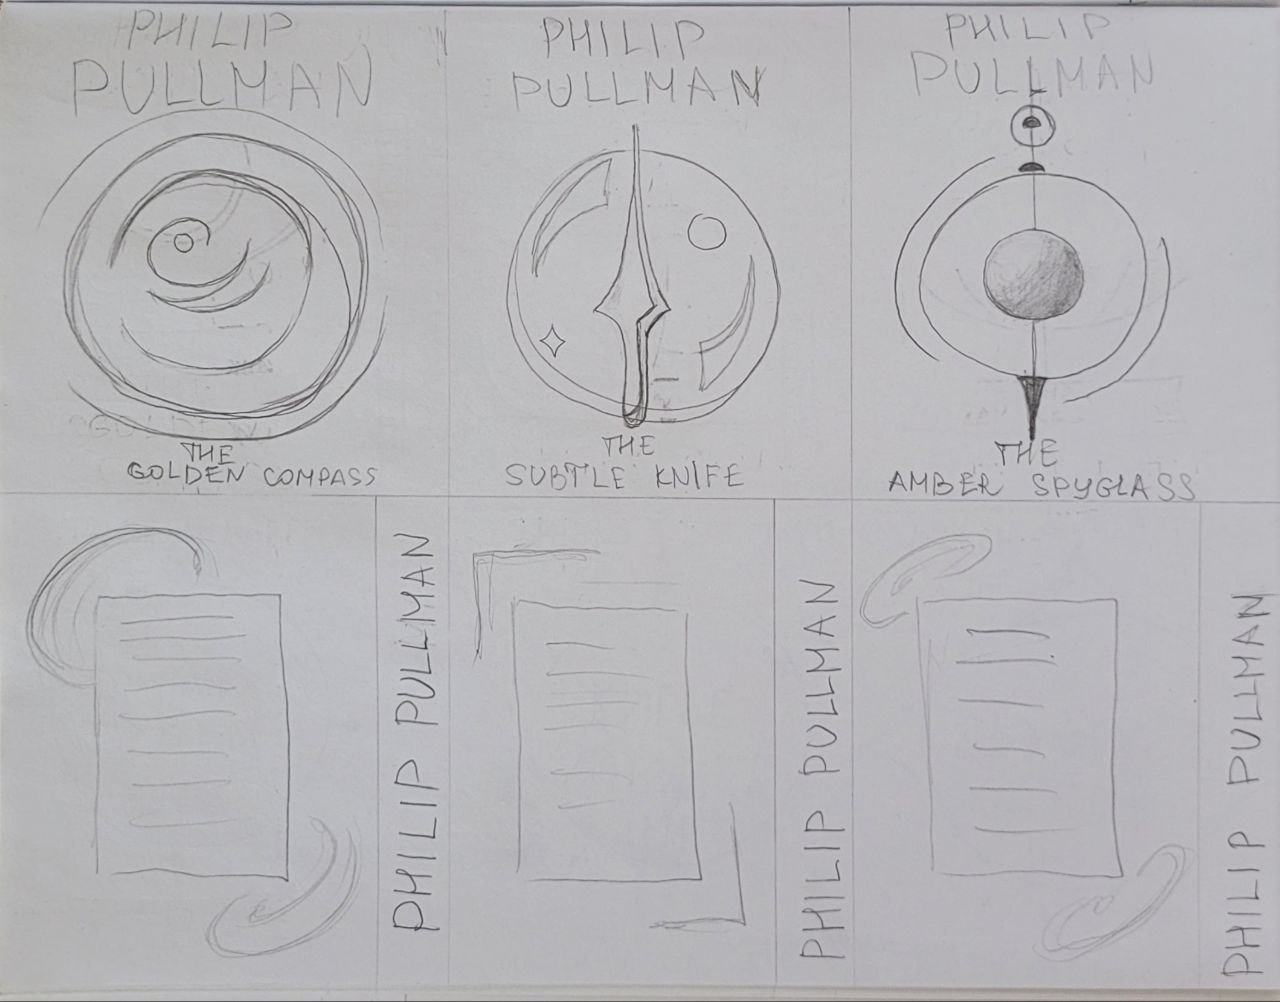 PHILIP
PULLMAN
THE
GOLDEN COMPASS
PHILIP
PULLMAN
THE
SUBTLE KNIFE
PHILIP
PULLMAN
THE
AMBER SPYGLASS
PHILIP PULLMAN
PHILIP PULLMAN
PHILIP PULLMAN